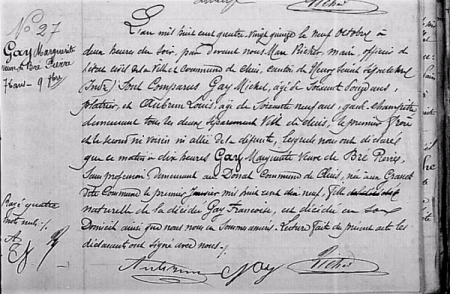 No 27
Gay Marguerite
veuve de Bré Pierre
78 ans - 9 8bre
L'an mil huit cent quatre vingt quinze le neuf octobre à
deux heures du soir, par devant nous Richet, maire, officier de
l'état civil de la Ville et Commune de Cluis, canton de Neuvy
(Indre) Sont Comparus Gay Michel, agé de soixante ans,
platrier, et Aubrun Louis, agé de soixante neuf ans, garde champêtre
demeurant tous les deux séparément Ville de Cluis, le premier frère
et le second ni voisin ni allié de la défunte, lesquels nous ont déclaré
que ce matin à dix heures Gay Marguerite Veuve de Bré Pierre,
Sans profession Demeurant au Commune de Cluis, née aux
dite Commune le premier Janvier mil huit cent dix neuf, fille
naturelle de la décédée Gay Françoise, est décédée en son
Domicile ainsi que nous nous en sommes assuré. Lecture faite du présent acte les
déclarants ont signé avec nous.
Rayé quatre
mots nuls
A
G
R
Aubrun Gay Richet